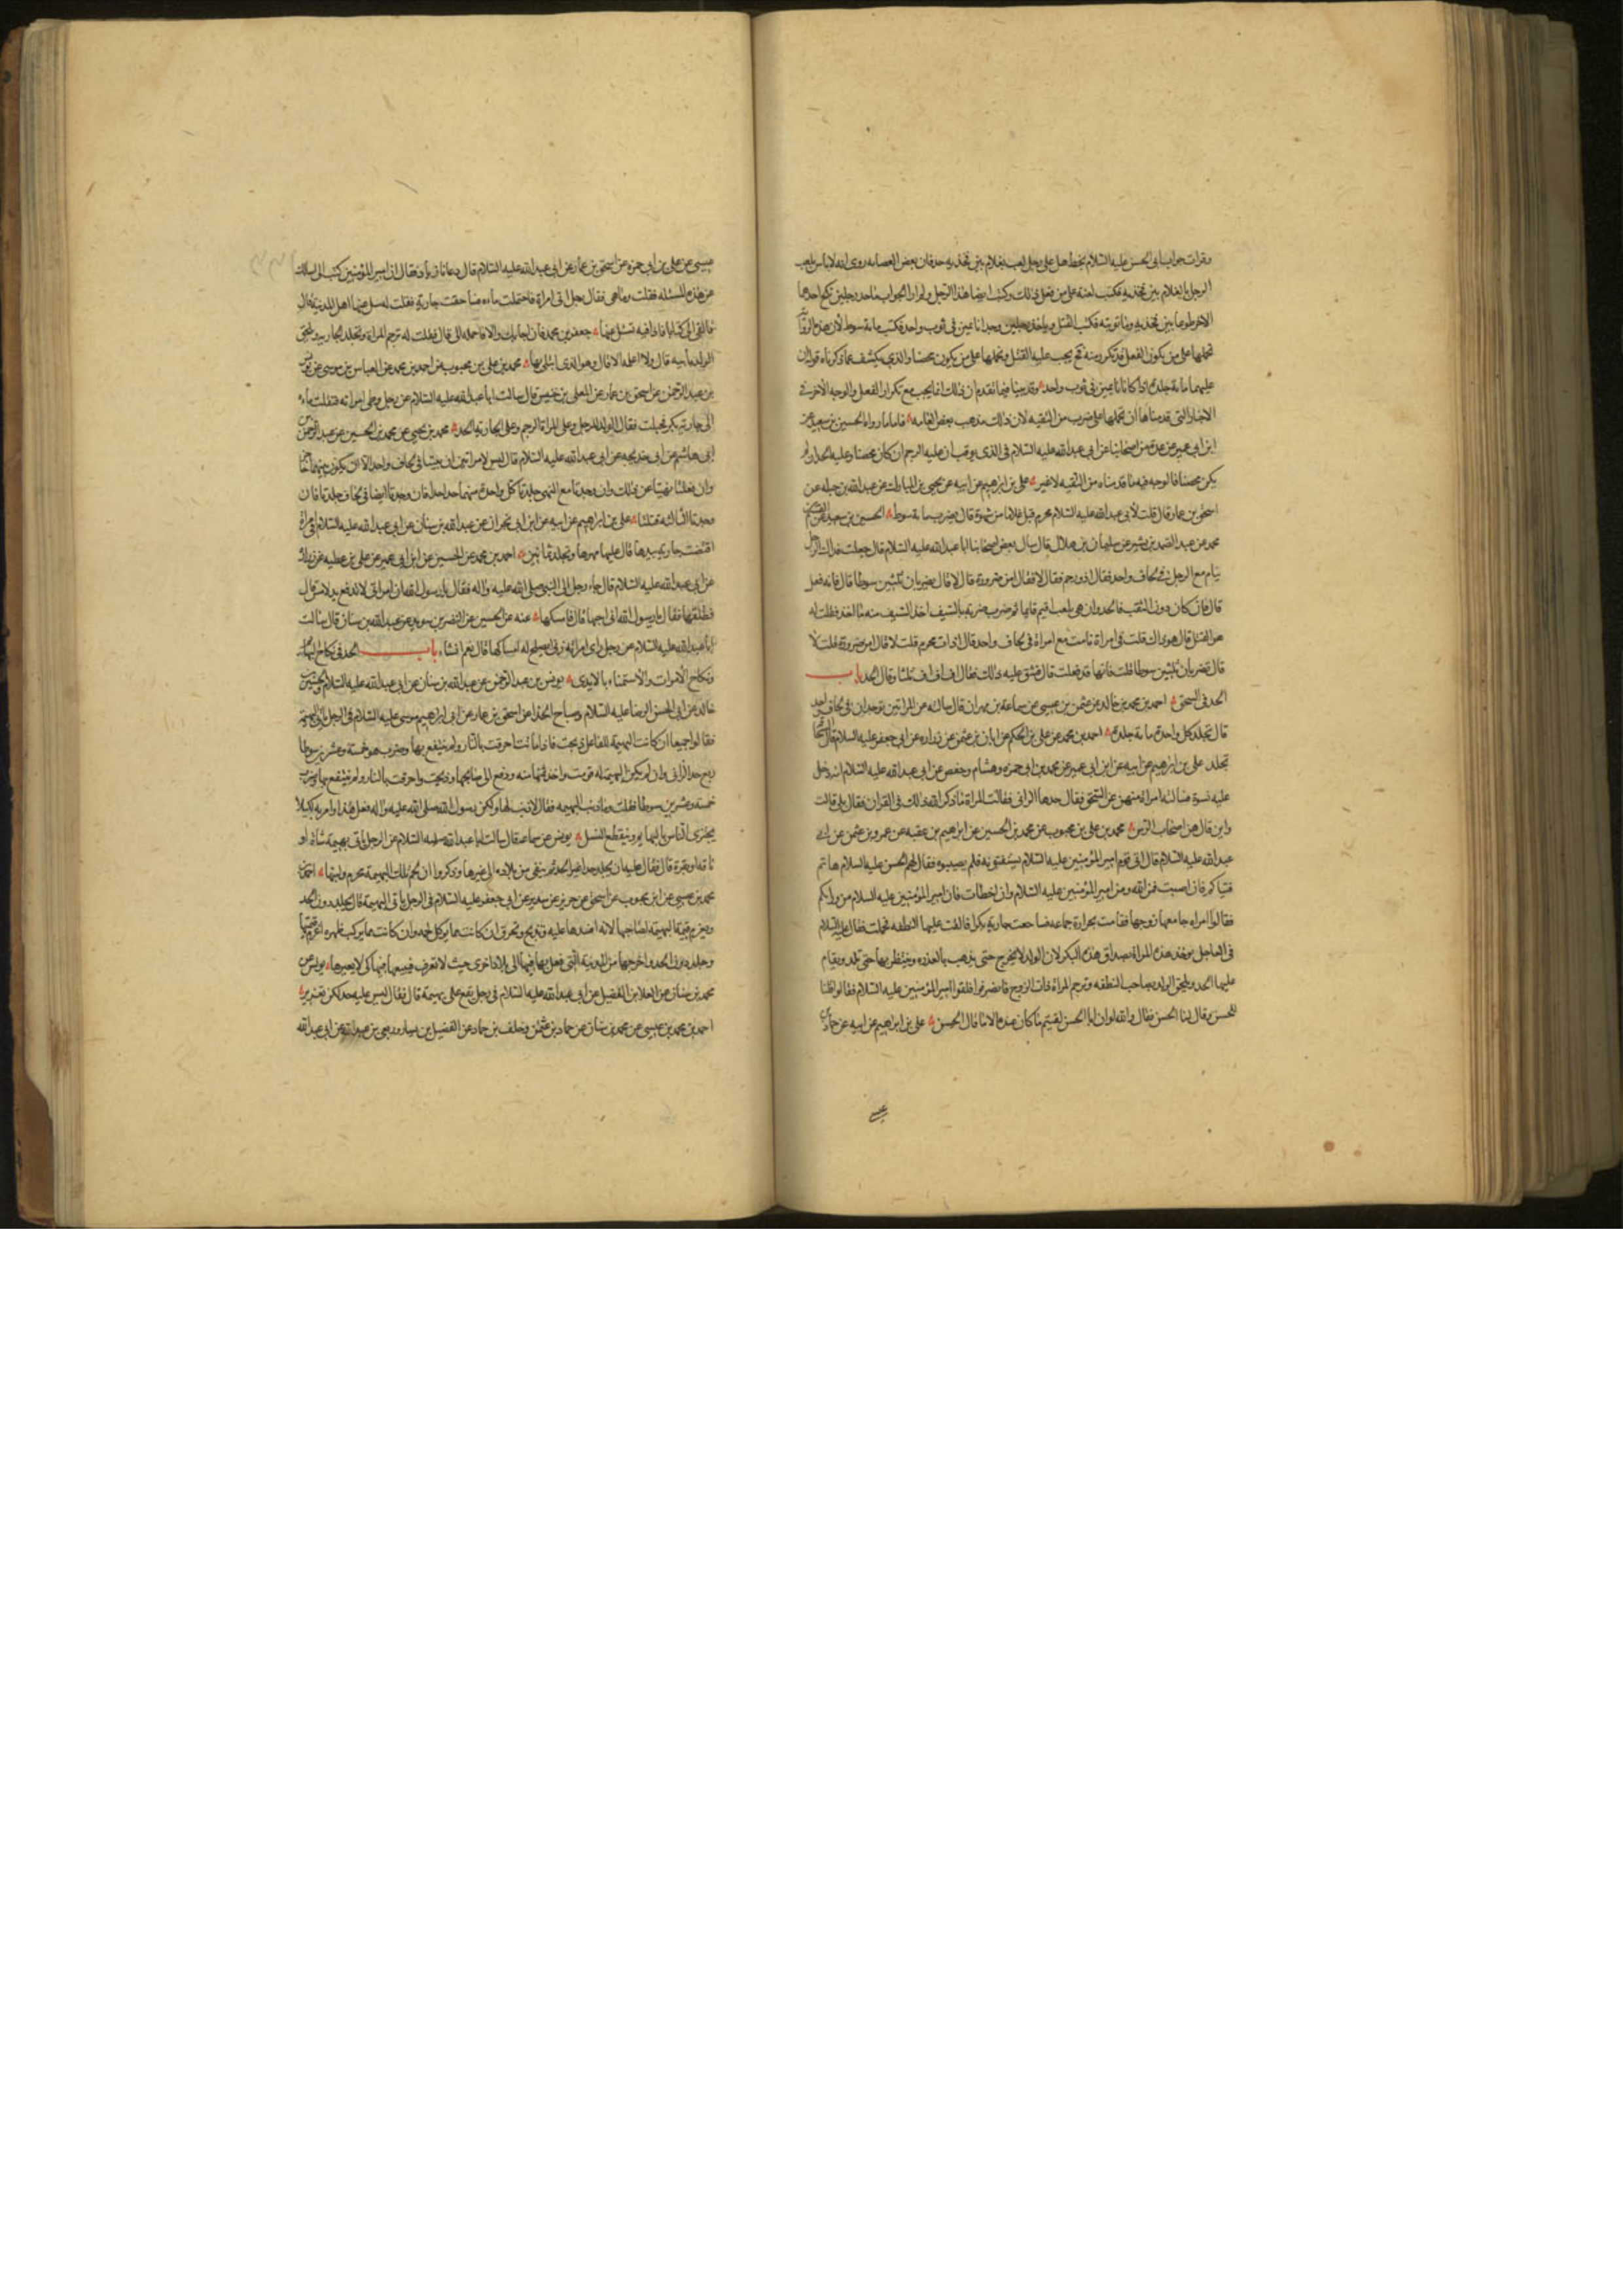 وقرات جواب ابى الحسن عليه السلام بخطه هل على رجل لعب بغلام بين فخذيه حد فان بعض العصابه روى انه لاباس بلعب
الرجل بالغلام بين فخذيه فكتب لعنة الله على من فعل ذلك وكتب ايضا هذا الرجل ولم ار الجواب ما حد رجلين نكح احدهما
الاخر طوعا بين فخذيه وما توبته فكتب القتل وما حد رجلين وجدا نائمين فى ثوب واحد فكتب مائة سوط لان هذه الرواية
نحملها على من يكون الفعل قد تكرر منه فح يجب عليه القتل ونحملها على من يكون محصنا والذى يكشف عما ذكرناه قوله ان
عليهما مائة جلدة اذا كانا نائمين فى ثوب واحد وقد بينا فيما تقدم ان ذلك انما يجب مع تكرار الفعل والوجه الاخر فى
الاخبار التى قدمناها ان نحملها على ضرب من التقيه لان ذلك مذهب بعض العامه فاما ما رواه الحسين بن سعيد عن
ابن ابى عمير عن عدة من اصحابنا عن ابى عبد الله عليه السلام فى الذى يوقب ان عليه الرجم ان كان محصنا وعليه الحد ان لم
يكن محصنا فالوجه فيه ما قدمناه من التقيه لاغير على بن ابرهيم عن ابيه عن يحيى بن المبارك عن عبد الله بن جبله عن
اسحق بن عمار قال قلت لابى عبد الله عليه السلام محرم قبل غلاما من شهوة قال يضرب مائة سوط الحسين بن سعيد عن القسم بن
محمد عن عبد الصمد بن بشير عن سليمان بن هلال قال سال بعض اصحابنا ابا عبد الله عليه السلام فقال جعلت فداك الرجل
ينام مع الرجل فى لحاف واحد فقال اذو رحم فقال لا فقال امن ضرورة قال لا قال يضربان ثلثين سوطا قال فانه فعل
قال فان كان دون الثقب فالحد وان هو ثقب اقيم قائما ثم ضرب ضربة بالسيف اخذ السيف منه ما اخذ فقلت له
هو القتل قال هو ذاك قلت فى امراة نامت مع امراة فى لحاف واحد قال ذات محرم قلت لا قال امن ضرورة قلت لا
قال تضربان ثلثين سوطا قلت فانها قد فعلت قال فشق عليه ذلك فقال اف اف اف ثلثا وقال الحد باب
الحد فى السحق احمد بن محمد بن خالد عن عثمن بن عيسى عن سماعة بن مهران قال سالته عن المراتين توجدان فى لحاف واحد
قال تجلد كل واحدة مائة جلدة احمد بن محمد عن على بن الحكم عن ابان بن عثمن عن زراره عن ابى جعفر عليه السلام قال السحاقة
تجلد على بن ابرهيم عن ابيه عن ابن ابى عمير عن محمد بن ابى حمزه وهشام وحفص عن ابى عبد الله عليه السلام انه دخل
عليه نسوة فسالته امراة منهن عن السحق فقال حدها حد الزانى فقالت المراة ما ذكر الله ذلك فى القران فقال بلى قالت
واين قال هن اصحاب الرس محمد بن على بن محبوب عن محمد بن الحسين عن ابرهيم بن عقبه عن عمرو بن عثمن عن ابى
عبد الله عليه السلام قال اتى قوم امير المؤمنين عليه السلام يستفتونه فلم يصيبوه فقال لهم الحسن عليه السلام هاتم
فتياكم فان اصبت فمن الله ومن امير المؤمنين عليه السلام وان اخطات فان امير المؤمنين عليه السلام من ورائكم
فقالوا امراة جامعها زوجها فقامت بحرارة جماعه فساحقت جارية بكرا فالقت عليها النطفه فحملت فقال عليه السلام
فى العاجل يوخذ هذه المراة بصداق هذه البكر لان الولد لا يخرج حتى يذهب بالعذره وينتظر بها حتى تلد ويقام
عليها الحد ويلحق الولد بصاحب النطفه وترجم المراة ذات الزوج فانصرفوا فلقوا امير المؤمنين عليه السلام فقالوا قلنا
للحسن وقال لنا الحسن فقال والله لو ان ابا الحسن لقيتم ما كان عنده الا ما قال الحسن على بن ابرهيم عن ابيه عن حماد بن
عيسى
عيسى عن على بن ابى حمزه عن اسحق بن عمار عن ابى عبد الله عليه السلام قال دعانا زياد فقال ان امير المؤمنين كتب الى اسالك
عن هذه المسئله فقلت وما هى فقال رجل اتى امراة فاحتملت ماءه فساحقت جاريه فقلت له سل عنها اهل المدينة قال
فالقى الى كتابا فاذا فيه تسئل عنها جعفر بن محمد فان اجابك والا فاحمله الى قال فقلت له ترجم المراة وتجلد الجاريه ويلحق
الولد بابيه قال ولا اعلمه الا قال وهو الذى ابتلى بها محمد بن على بن محبوب عن احمد بن محمد عن العباس بن موسى عن يونس
بن عبد الرحمن عن اسحق بن عمار عن المعلى بن خنيس قال سالت ابا عبد الله عليه السلام عن رجل وطى امراته فنقلت ماءه
الى جارية بكر فحبلت فقال الولد للرجل وعلى المراة الرجم وعلى الجارية الحد محمد بن يحيى عن محمد بن الحسين عن عبد الرحمن بن
ابى هاشم عن ابى خديجه عن ابى عبد الله عليه السلام قال ليس لامراتين ان يبيتا فى لحاف واحد الا ان يكون بينهما حاجز
وان فعلتا نهيتا عن ذلك وان وجدتا مع النهى جلدت كل واحدة منهما حدا حدا فان وجدتا ايضا فى لحاف جلدتا فان
وجدتا الثالثه قتلتا على بن ابرهيم عن ابيه عن ابن ابى نجران عن عبد الله بن سنان عن ابى عبد الله عليه السلام فى امراة
اقتضت جارية بيدها قال عليها مهرها وتجلد ثمانين احمد بن محمد عن الحسين عن ابن ابى عمير عن على بن عطيه عن زراره
عن ابى عبد الله عليه السلام قال جاء رجل الى النبى صلى الله عليه واله فقال يا رسول الله ان امراتى لا تدفع يد لامس قال
فطلقها فقال يا رسول الله انى احبها قال فامسكها عنه عن الحسين عن النضر بن سويد عن عبد الله بن سنان قال سالت
ابا عبد الله عليه السلام عن رجل راى امراته تزنى ايصلح له امساكها قال نعم انشاء باب الحد فى نكاح البهائم
ونكاح الاموات والاستمناء بالايدى يونس بن عبد الرحمن عن عبد الله بن سنان عن ابى عبد الله عليه السلام والحسين بن
خالد عن ابى الحسن الرضا عليه السلام وصباح الحذا عن اسحق بن عمار عن ابى ابرهيم موسى عليه السلام فى الرجل ياتى البهيمة
فقالوا جميعا ان كانت البهيمة للفاعل ذبحت فاذا ماتت احرقت بالنار ولم ينتفع بها وضرب هو خمسة وعشرين سوطا
ربع حد الزانى وان لم يكن البهيمة له قومت واخذ ثمنها منه ودفع الى صاحبها وذبحت واحرقت بالنار ولم ينتفع بها وضرب
خمسة وعشرين سوطا فقلت وما ذنب البهيمه فقال لا ذنب لها ولكن رسول الله صلى الله عليه واله فعل هذا وامر به لكيلا
يجتزى الناس بالبهايم وينقطع النسل يونس عن سماعه قال سالت ابا عبد الله عليه السلام عن الرجل ياتى بهيمة شاة او
ناقه او بقرة قال فقال عليه ان يجلد حدا غير الحد ثم ينفى من بلاده الى غيرها وذكروا ان لحم تلك البهيمة محرم ولبنها احمد بن
محمد بن عيسى عن ابن محبوب عن اسحق عن حريز عن سدير عن ابى جعفر عليه السلام فى الرجل ياتى البهيمة قال يجلد دون الحد
ويغرم قيمة البهيمة لصاحبها لانه افسدها عليه وتذبح وتحرق ان كانت مما يوكل لحمه وان كانت مما يركب ظهره اغرم قيمتها
وجلد دون الحد واخرجها من المدينة التى فعل بها فيها الى بلاد اخرى حيث لا تعرف فيبيعها فيها كى لا يعير بها يونس عن
محمد بن سنان عن العلا بن الفضيل عن ابى عبد الله عليه السلام فى رجل يقع على بهيمة قال فقال ليس عليه حد لكن تعزير
احمد بن محمد بن عيسى عن محمد بن سنان عن حماد بن عثمن وخلف بن حماد عن الفضيل بن يسار وربعى بن عبد الله عن ابى عبد الله